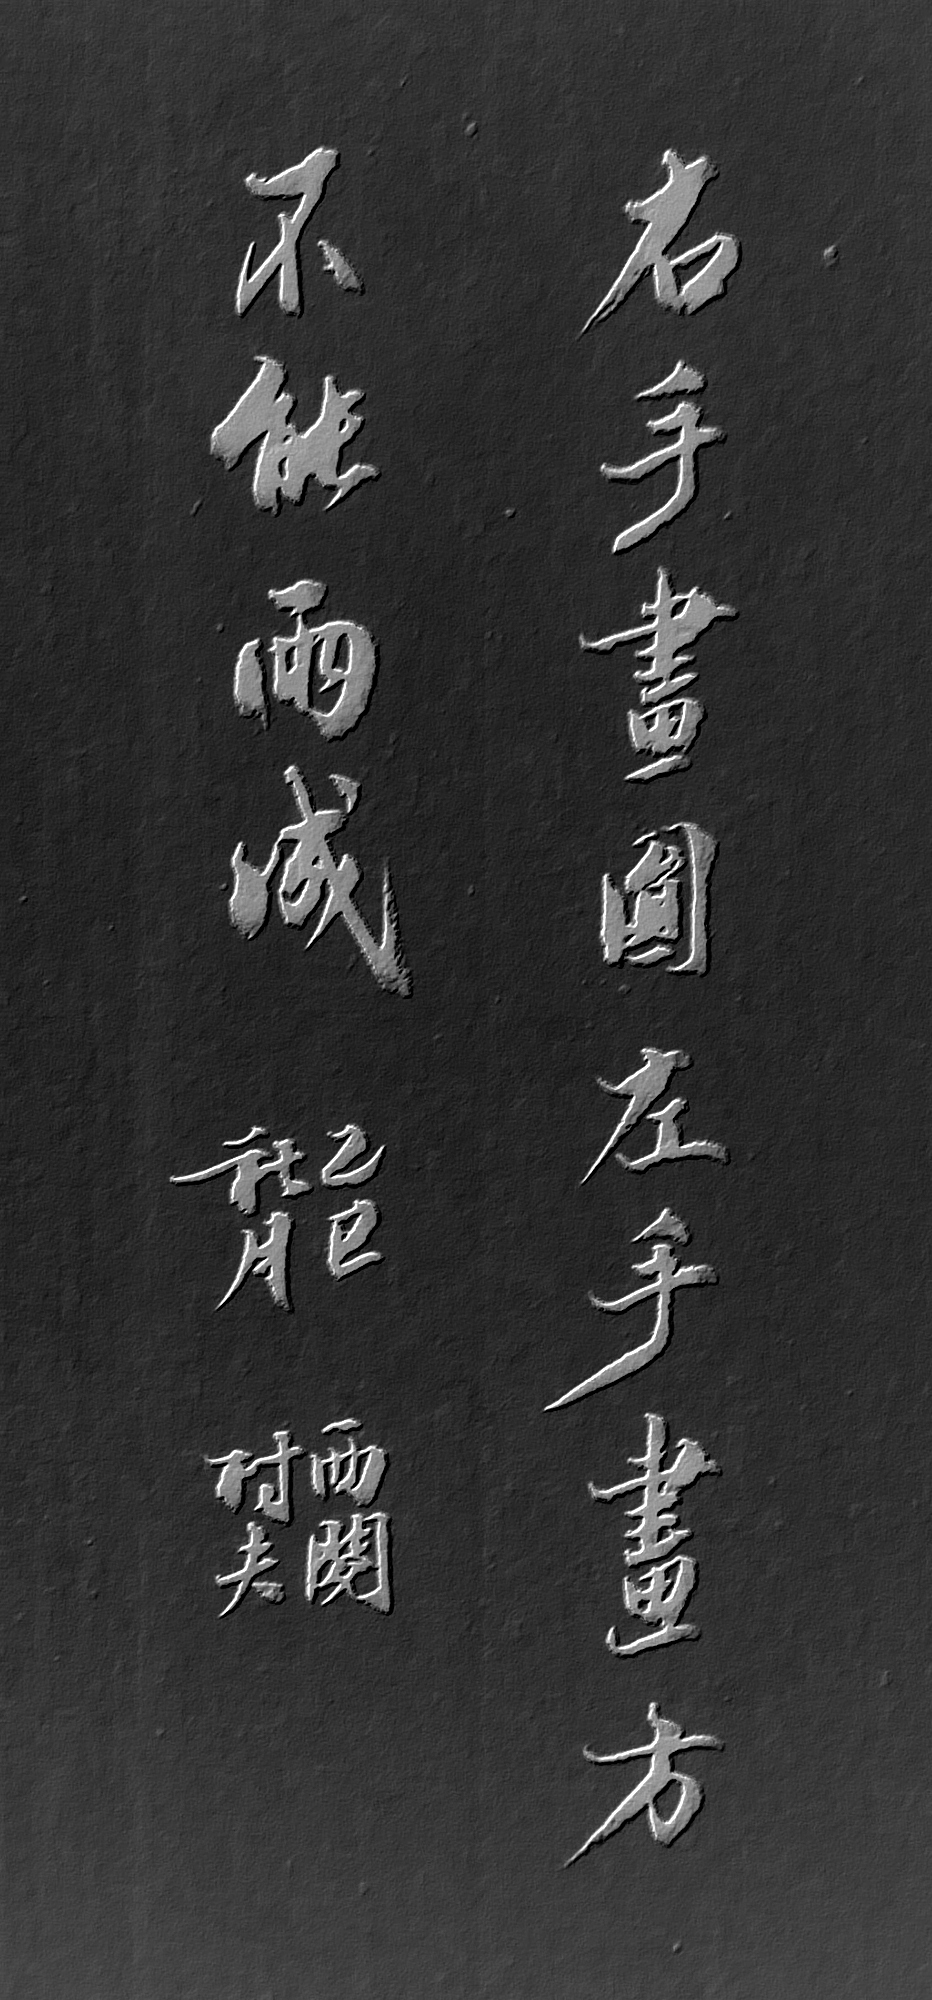 右手畫圓左手畫方
不能兩成
乙巳
社月
西
村夫